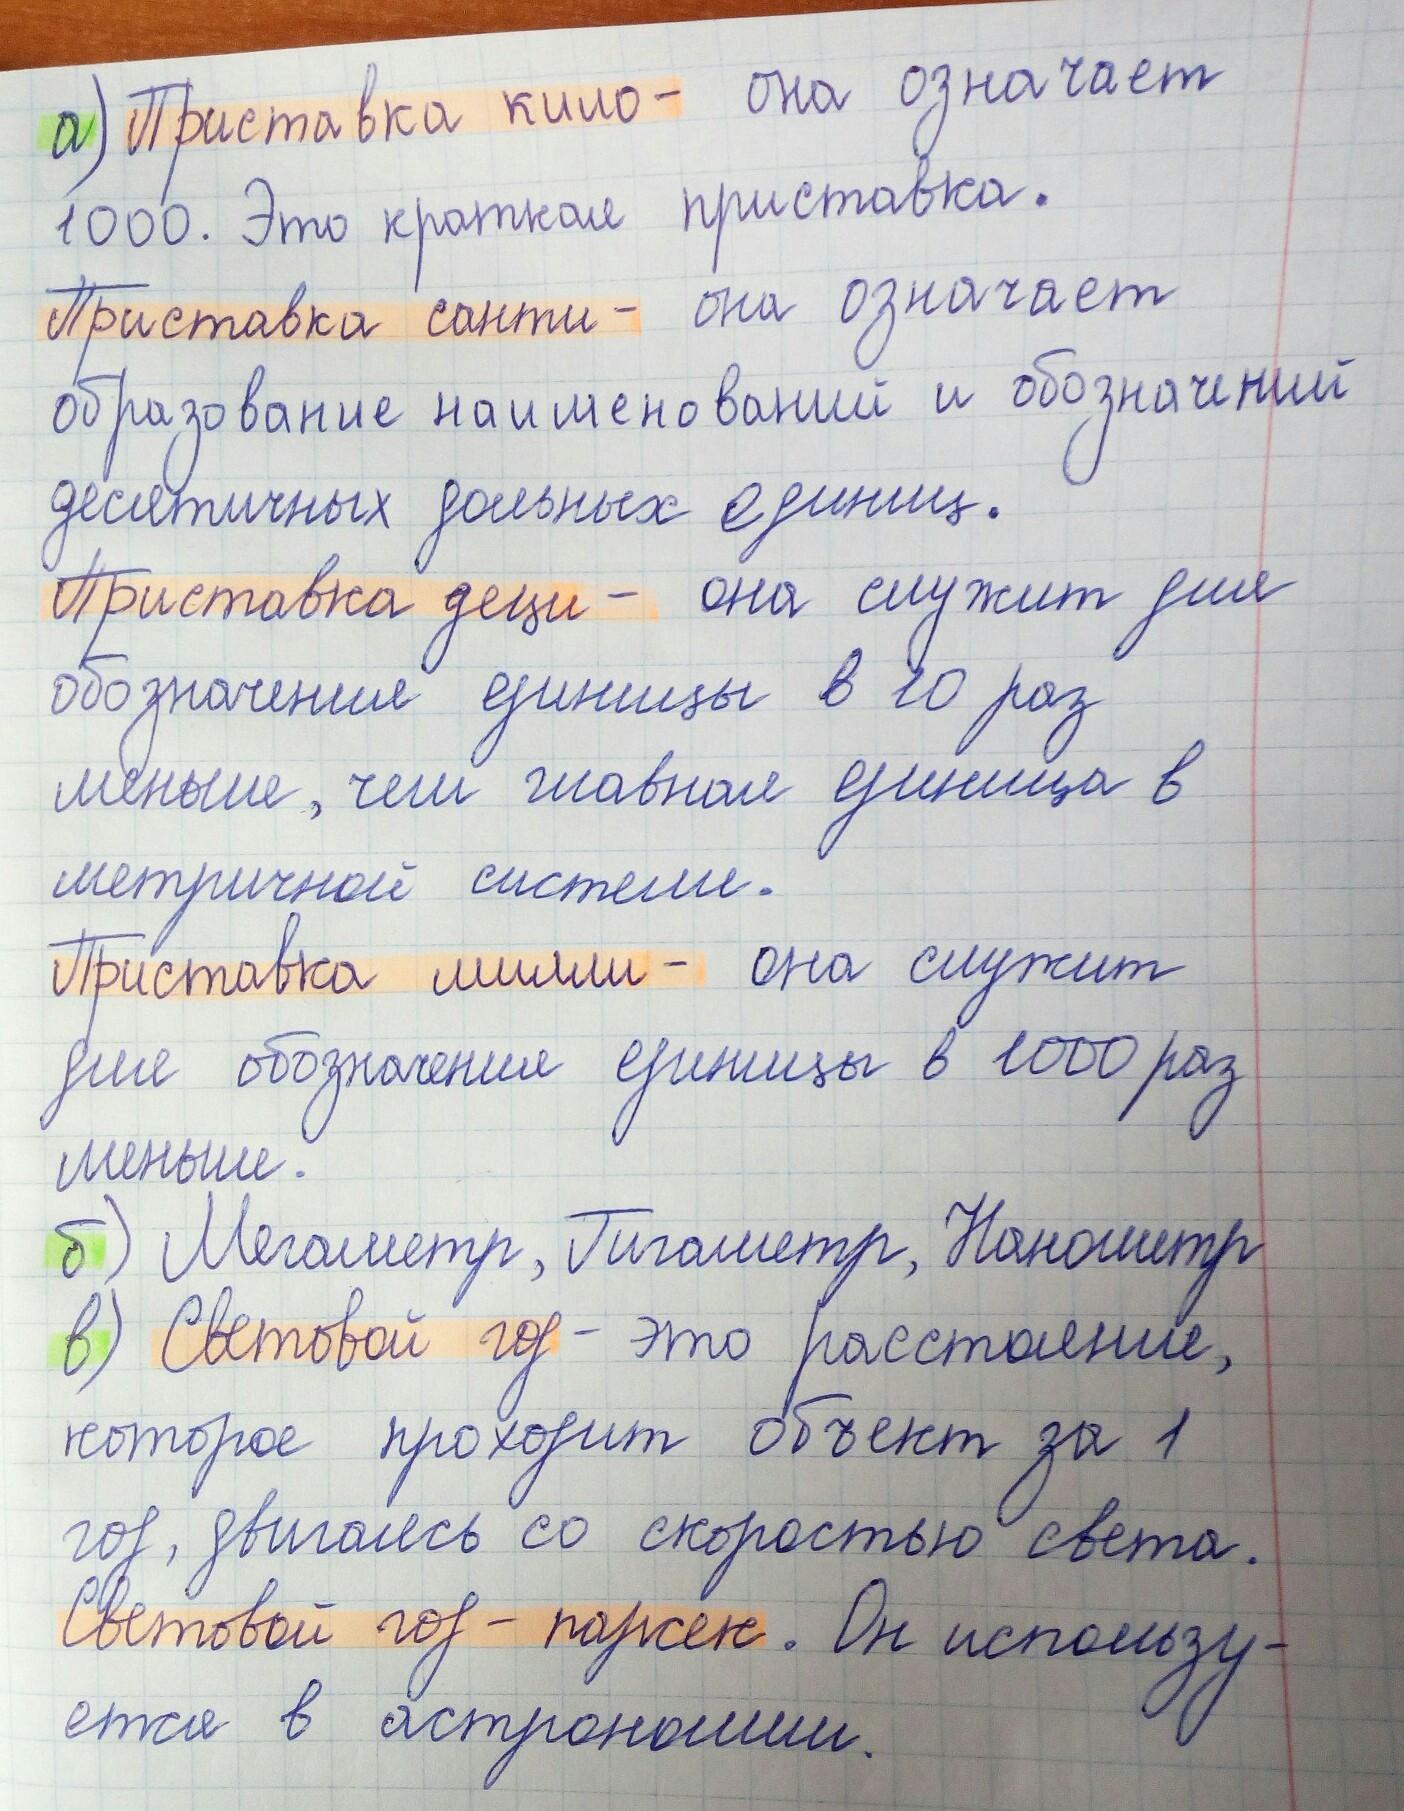 а) Приставка кило- она означает
1000. Это краткая приставка.
Приставка санти - она означает
образование наименований и обозначений
десятичных дольных единиц.
Приставка деци - она служит для
обозначения единицы в 10 раз
меньше, чем главная единица в
метричной системе.
Приставка милли - она служит
для обозначения единицы в 1000 раз
меньше.
б) Мегаметр, Гигаметр, Нанометр
в) Световой год - это расстояние,
которое проходит объект за 1
год, двигаясь со скоростью света.
Световой год - парсек. Он использу-
ется в астрономии.